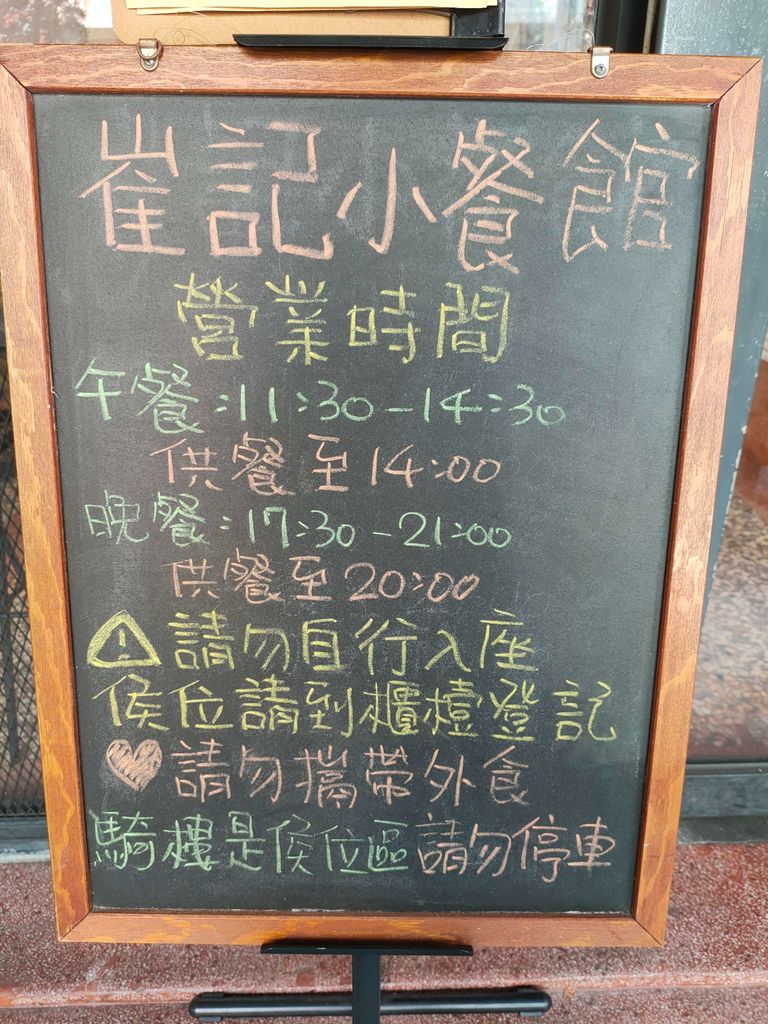 崔記小餐館
營業時間
午餐:11:30-14:30
供餐至14:00
晚餐:17:30-21:00
供餐至20:00
⚠請勿自行入座
侯位請到櫃檯登記
♥請勿攜帶外食
騎樓是侯位區請勿停車